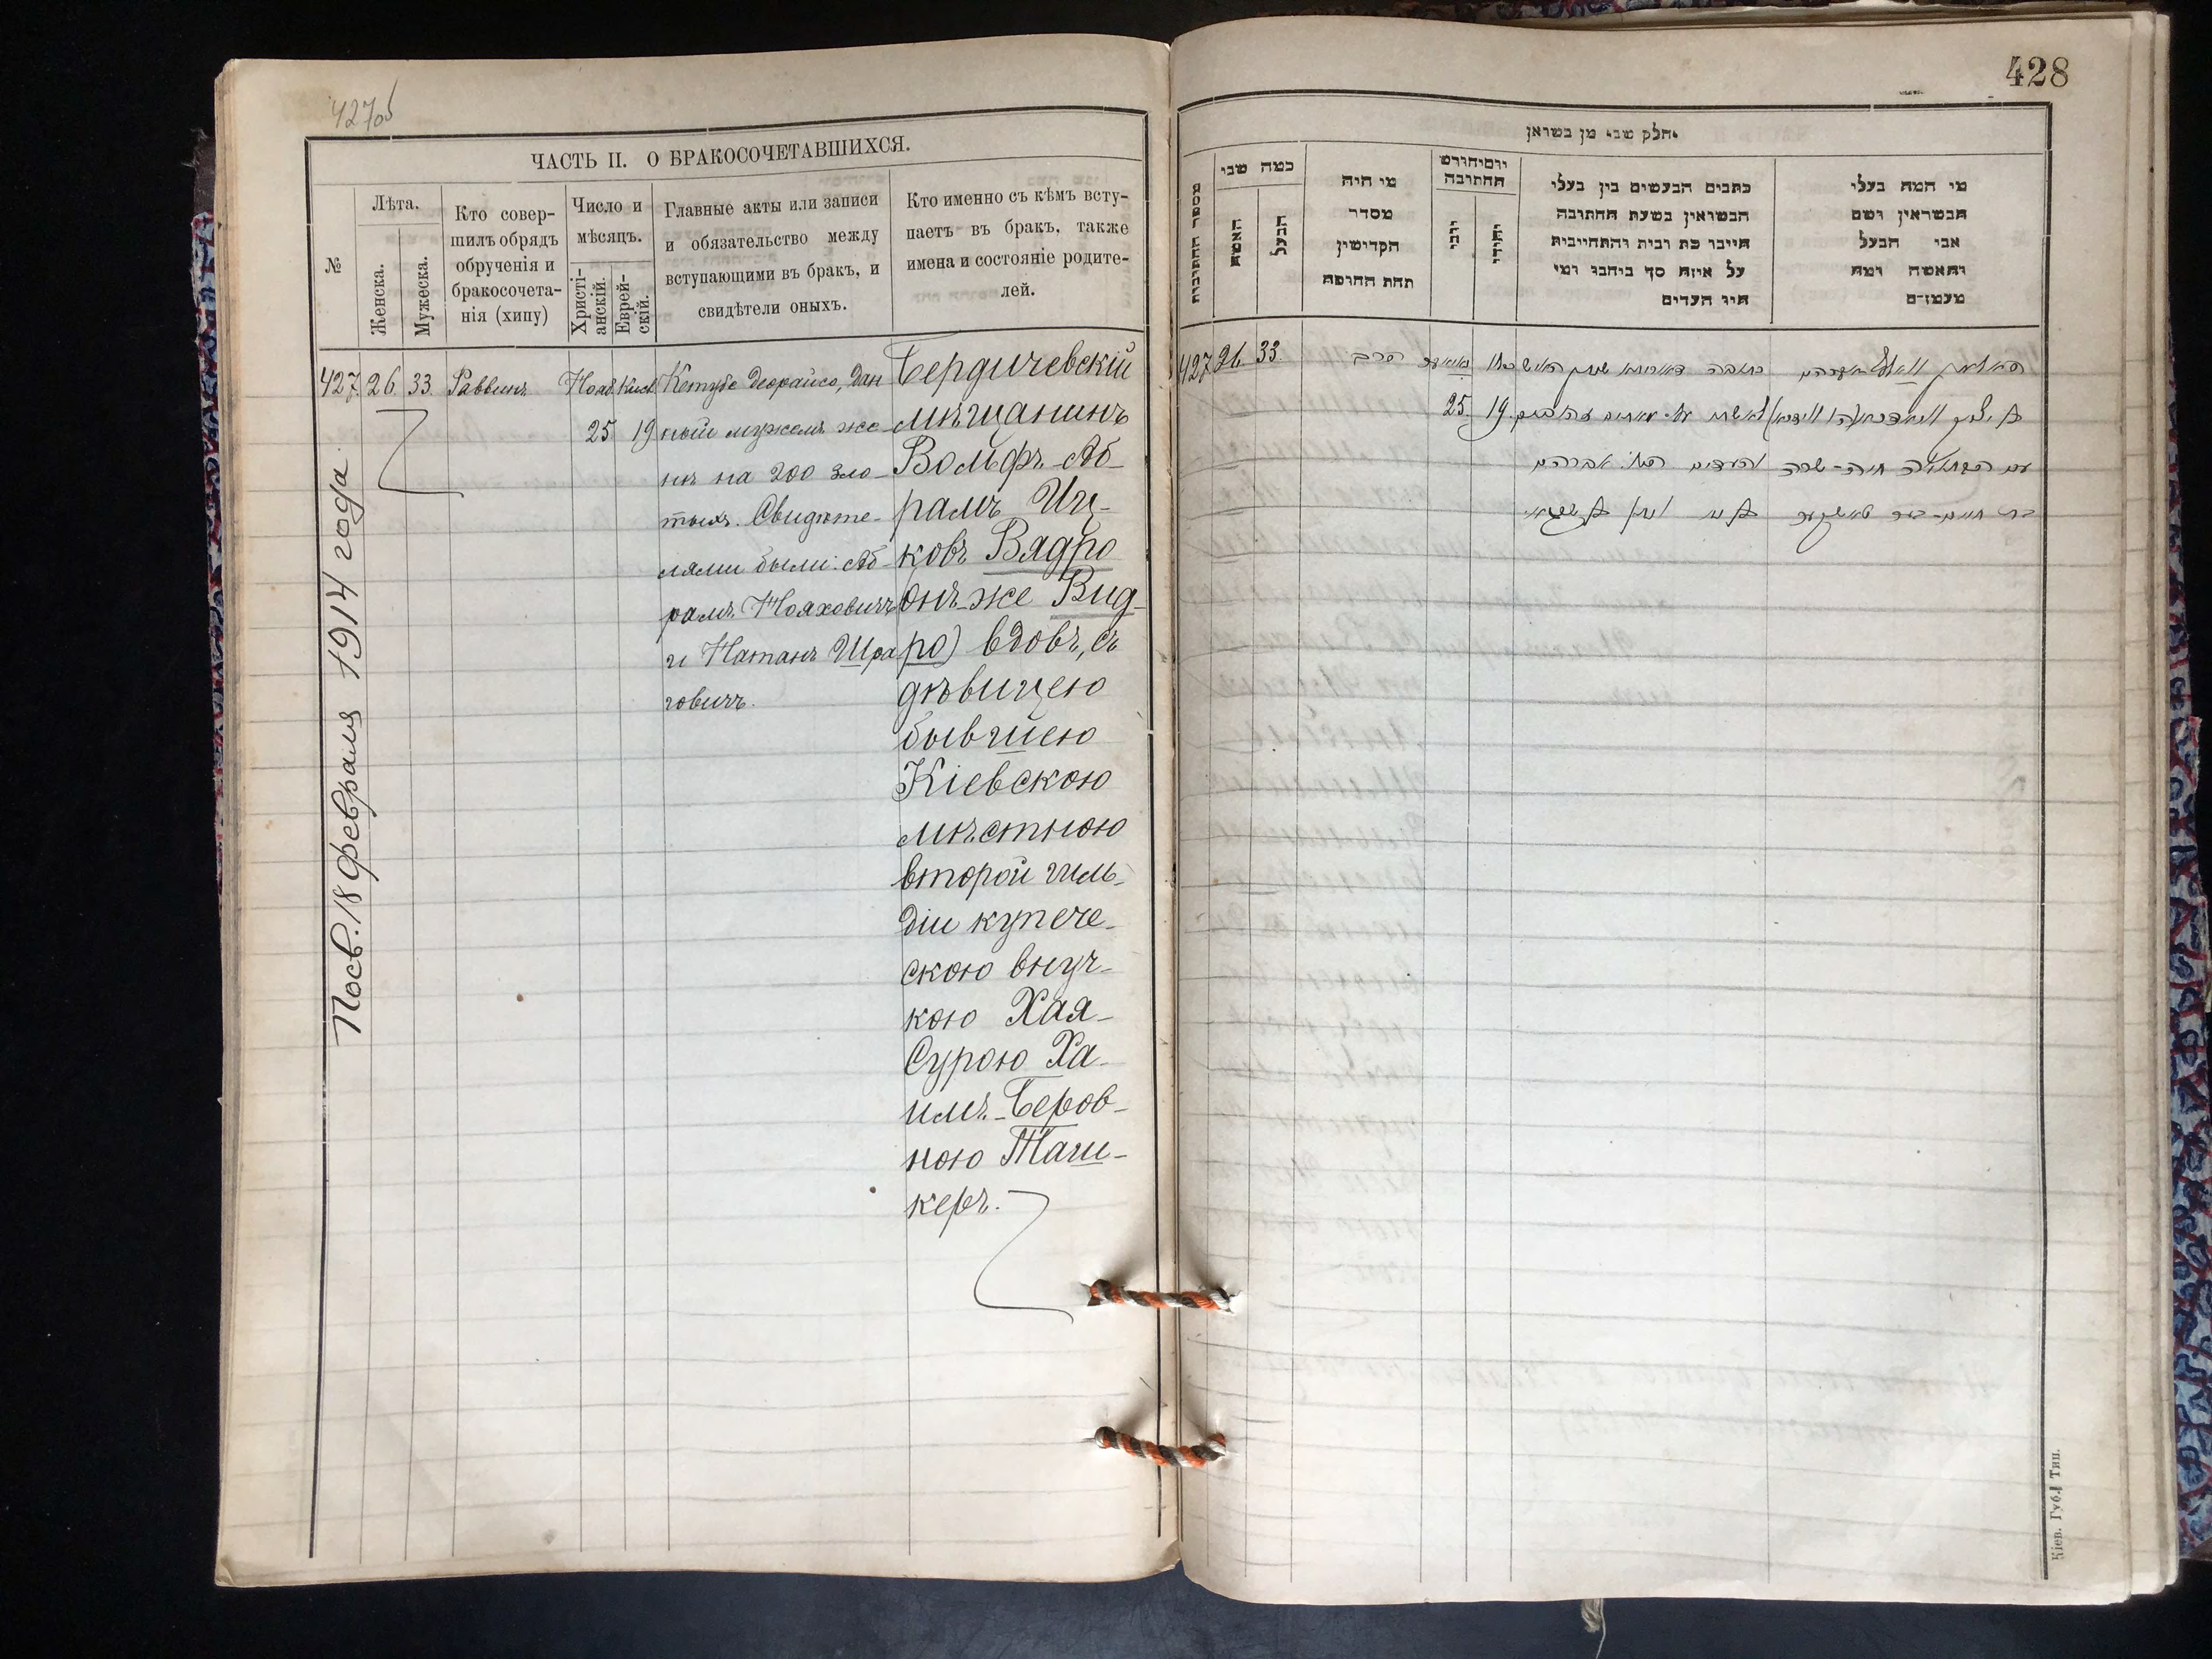 427об
ЧАСТЬ II. О БРАКОСОЧЕТАВШИХСЯ.
№
Лѣта.
Женска.
Мужеска.
Кто совер-
шилъ обрядъ
обрученія и
бракосочета-
нія (хипу)
Число и
мѣсяцъ.
Христі-
анскій.
Еврей-
скій.
Главные акты или записи
и обязательство между
вступающими въ бракъ, и
свидѣтели оныхъ.
Кто именно съ кѣмъ всту-
паетъ въ бракъ, также
имена и состояніе родите-
лей.
427.
26.
33.
Раввинъ
Нояб.
25
Кисл.
19
Кетубо деорайсо, дан
ный мужемъ же-
нѣ на 200 зло-
тыхъ. Свидѣте-
лями были: Аб-
рамъ Нояховичъ
и Натанъ Шра
говичъ.
Бердичевскій
мѣщанинъ
Вольфъ-Аб-
рамъ Иц-
ковъ Вядро
онъ-же Вид-
ро) вдовъ, съ
дѣвицею
бывшею
Кіевскою
мѣстною
второй гиль-
діи купече-
скою внуч-
кою Хая-
Сурою Ха-
имъ-Беров-
ною Таш-
керъ.
Посв. 18 февраля 1914 года.
428
חלק שני מן נשואין
מספר החתונות
כמה שני
האשה
הבעל
מי היה
מסדר
הקדישין
תחת החופה
יום וחודש
החתונה
יוני
יהודי
כתבים הנעשים בין בעלי
הנשואין בשעת החתונה
היינו כת ובית והתחייבות
על איזה סך ביחבו ומי
היו העדים
מי המה בעלי
הנשואין ושם
אבי הבעל
והאשה ומה
מעמדם
427
26
33.
הרב
25.
19.
כתובה דאורייתא
והעדים
אברהם
חיה-שרה
Кіев. Губ. Тип.